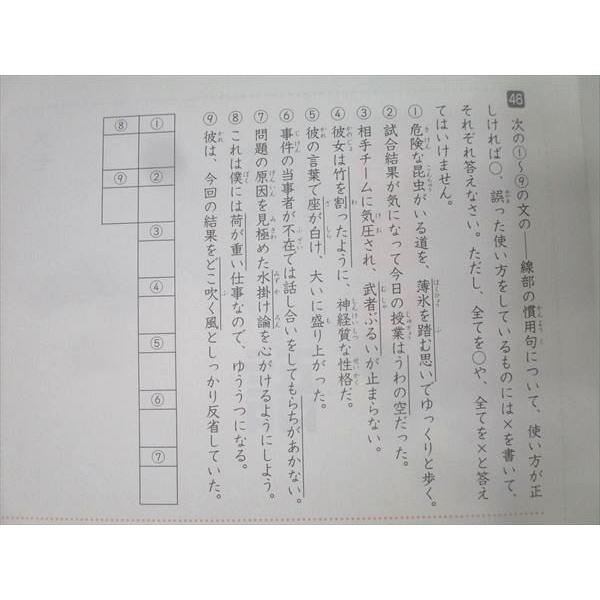 48 次の①〜⑨の文の――線部の慣用句について、使い方が正
しければ○、誤った使い方をしているものには×を書いて、
それぞれ答えなさい。ただし、全てを○や、全てを×と答え
てはいけません。
①危険な昆虫がいる道を、薄氷を踏む思いでゆっくりと歩く。
②試合結果が気になって今日の授業はうわの空だった。
③相手チームに気圧され、武者ぶるいが止まらない。
④彼女は竹を割ったように、神経質な性格だ。
⑤彼の言葉で座が白け、大いに盛り上がった。
⑥事件の当事者が不在では話し合いをしてもらちがあかない。
⑦問題の原因を見極めた水掛け論を心がけるようにしよう。
⑧これは僕には荷が重い仕事なので、ゆううつになる。
⑨彼は、今回の結果をどこ吹く風としっかり反省していた。
① ② ③ ④ ⑤ ⑥ ⑦
⑧ ⑨